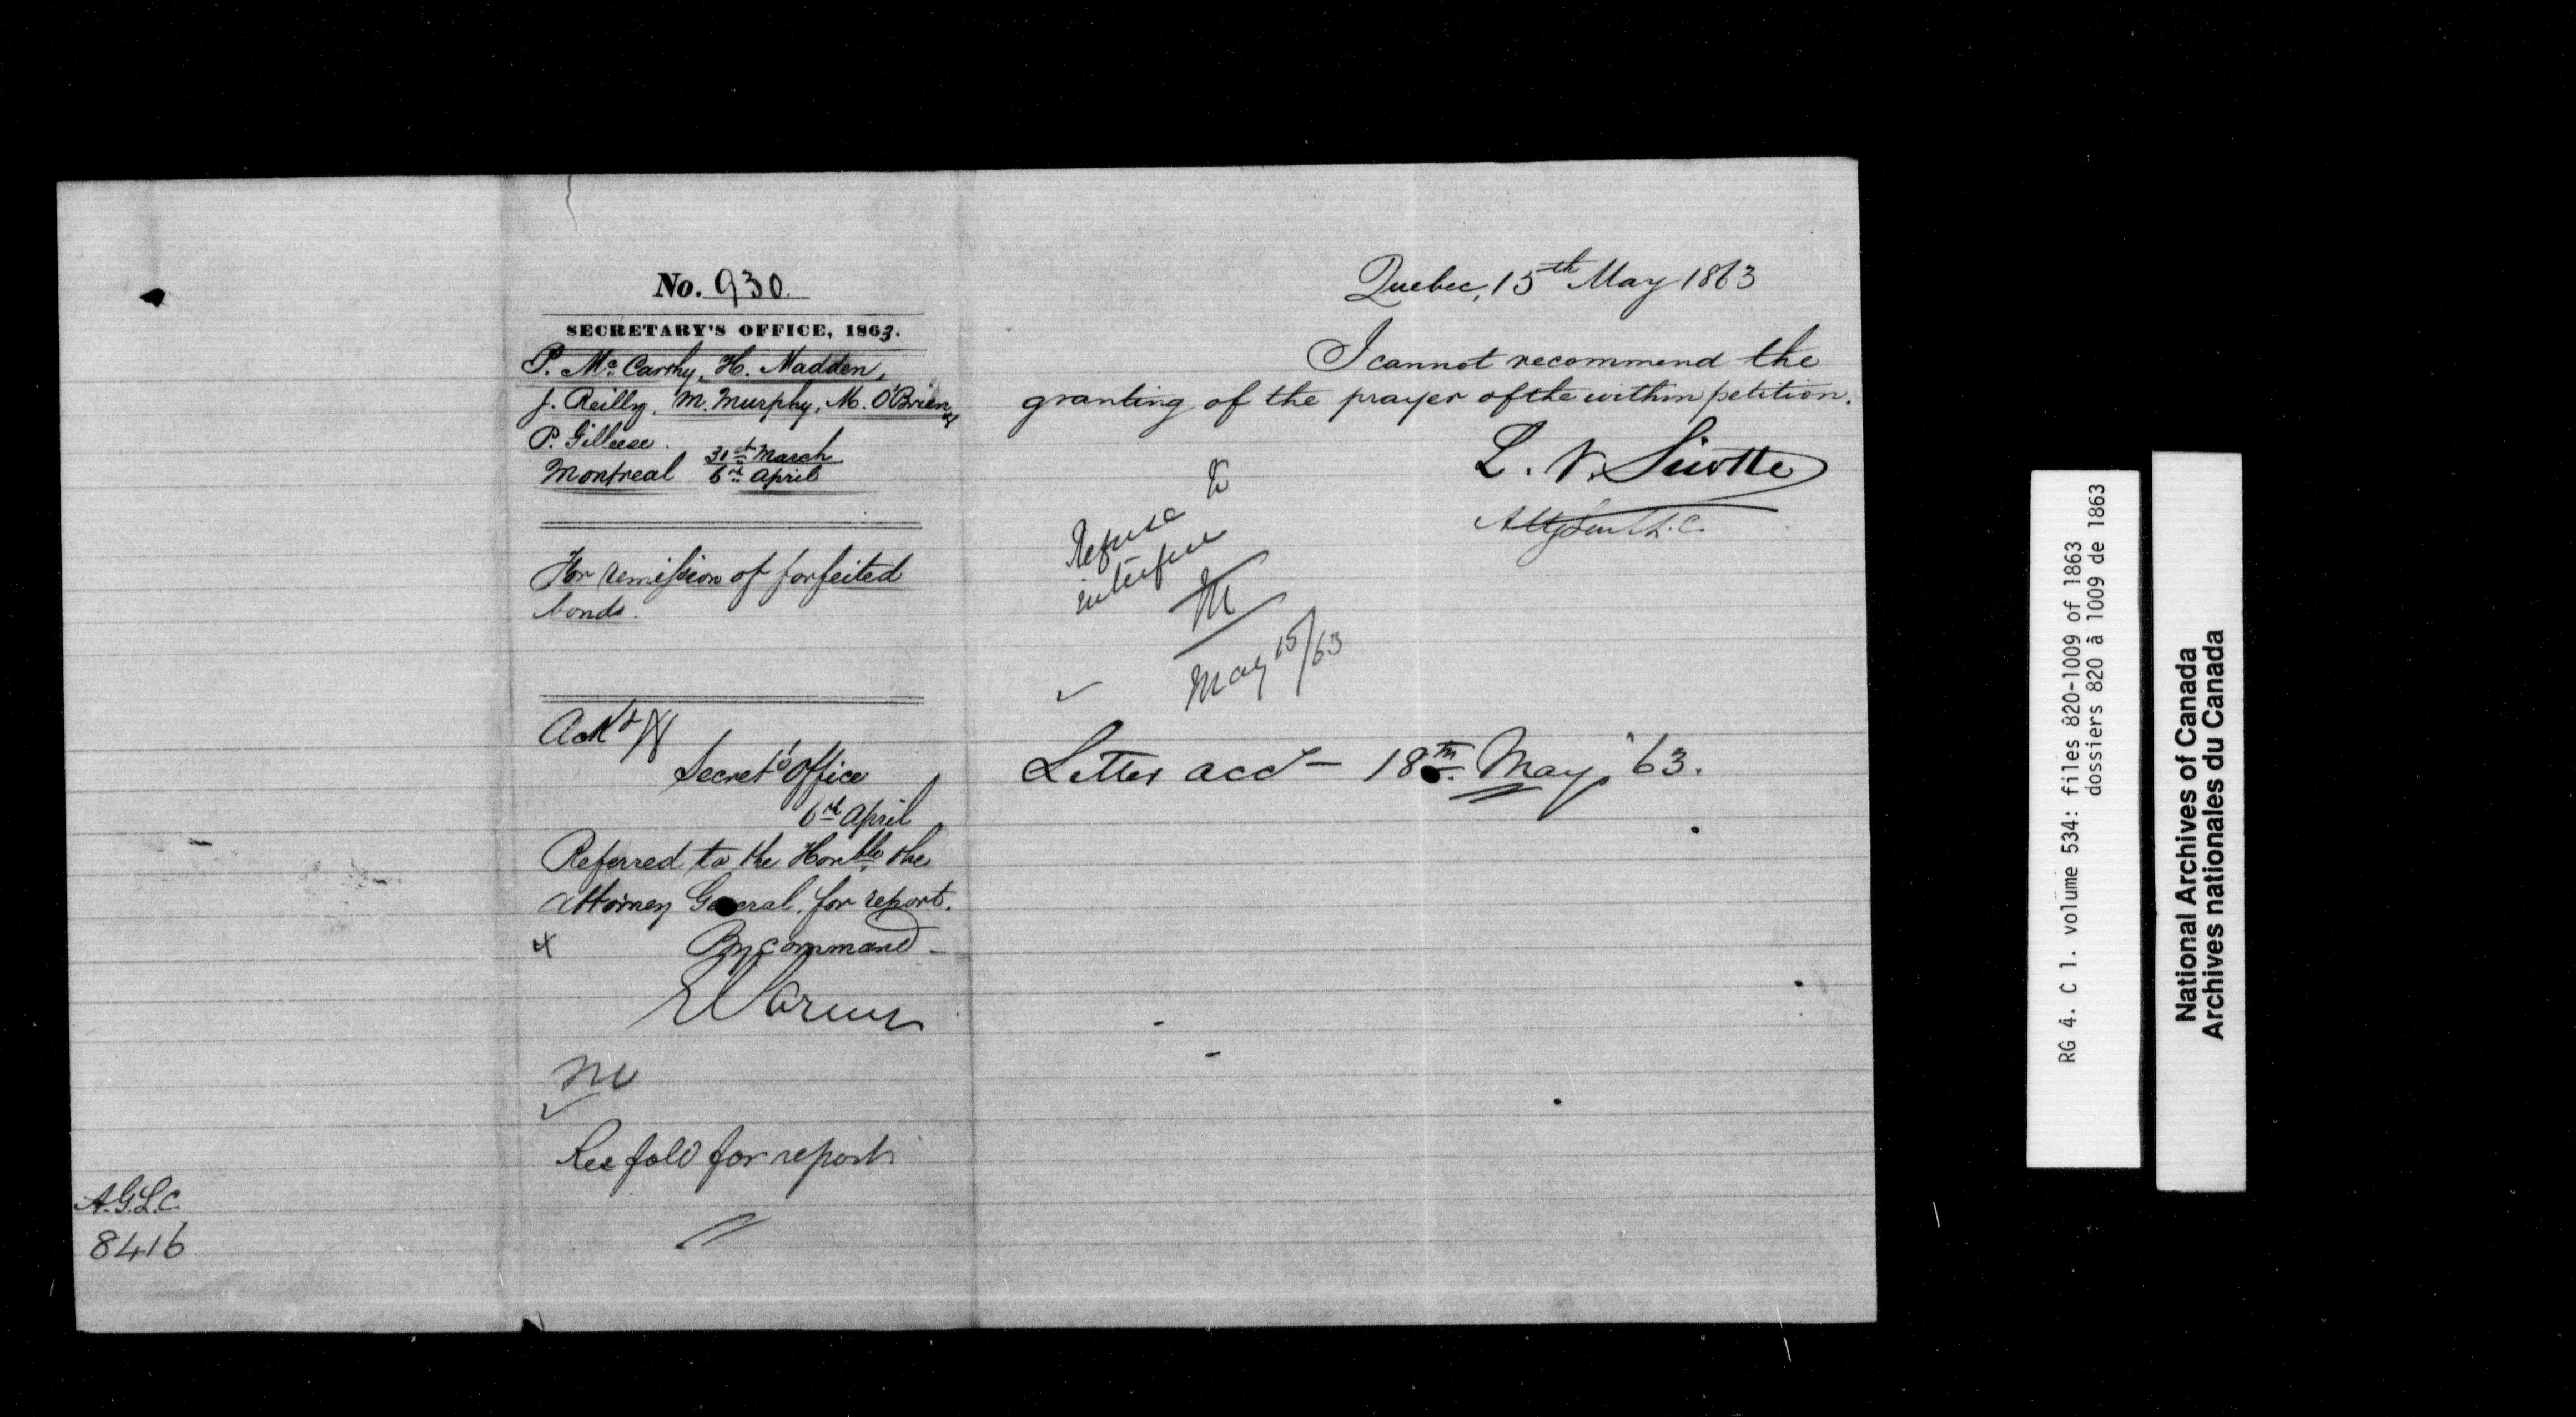 No. 930.
SECRETARY'S OFFICE, 1863.
P. Mc. Carthy, H. Madden,
J. Reilly, M. Murphy, M. O'Brien &
P. Gilleese.
Montreal 31st March
6th April
For remission of forfeited
bonds.
Ackd
Secrets Office
6th April
Referred to the Honble. the
Attorney General. for report.
x By command -
See fold for report
A.G.L.C.
8416
Quebec, 15th May 1863
I cannot recommend the
granting of the prayer of the within petition.
L. V. Sicotte
Atty Gen L.C.
Refuse to
interfere
M
May 15/63
Letter accd - 18th. May, 63.
RG 4. C 1. volume 534: files 820-1009 of 1863
dossiers 820 à 1009 de 1863
National Archives of Canada
Archives nationales du Canada